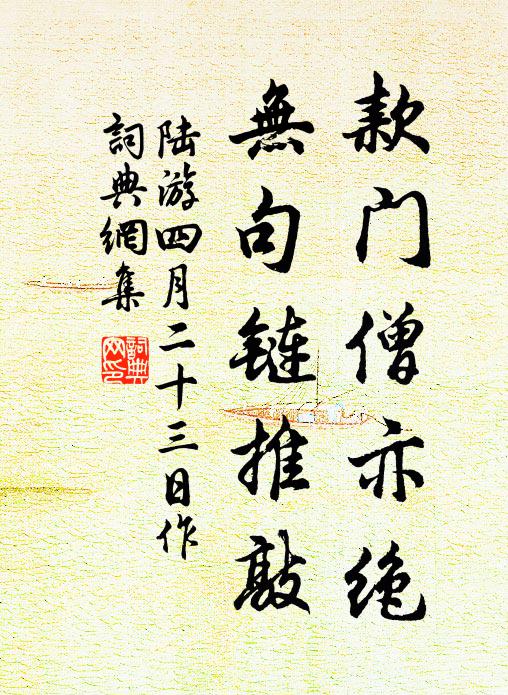 款门僧亦绝
無句鏈推敲
陆游四月二十三日作
詞典網集
詞典网印